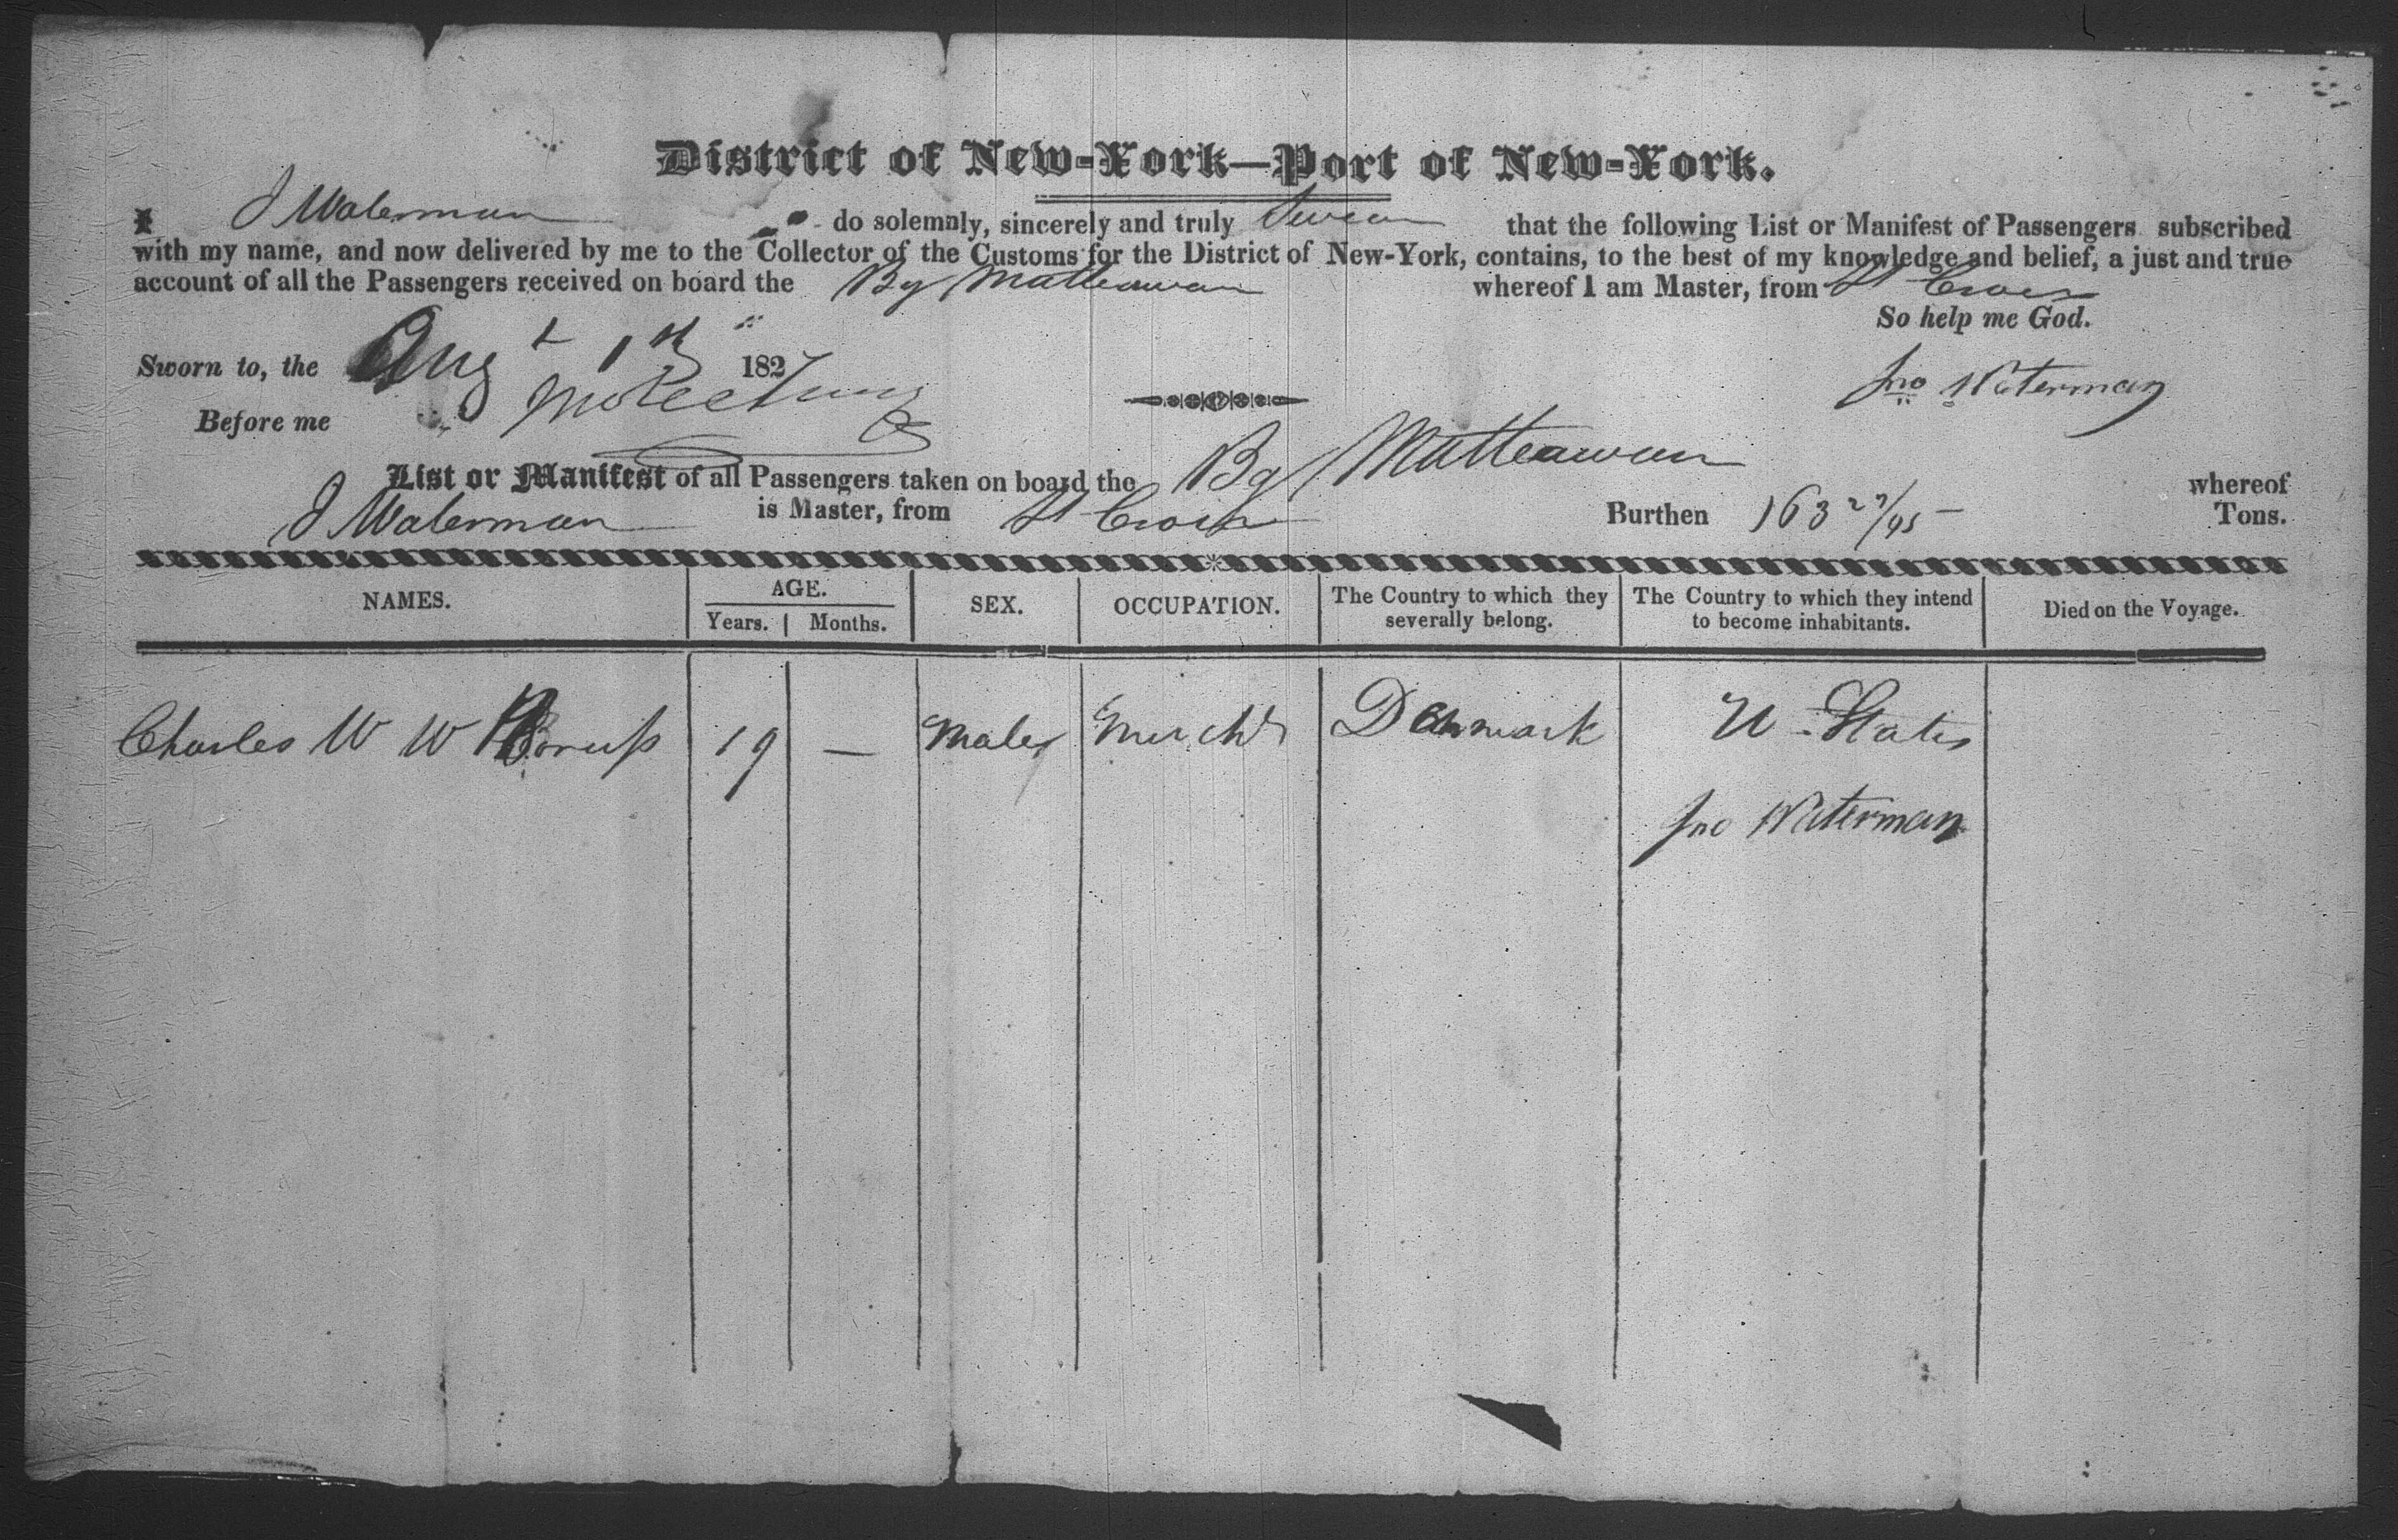 District of New-York—Port of New-York.
I J Waterman do solemnly, sincerely and truly Swear that the following List or Manifest of Passengers subscribed
with my name, and now delivered by me to the Collector of the Customs for the District of New-York, contains, to the best of my knowledge and belief, a just and true
account of all the Passengers received on board the Bg Matteawan whereof I am Master, from St Croix
So help me God.
Sworn to, the Augt 1st 1827
Jno Waterman
Before me
List or Manifest of all Passengers taken on board the Bg Matteawan whereof
J Waterman is Master, from St Croix Burthen 163 27/95 Tons.
NAMES. AGE. SEX. OCCUPATION. The Country to which they severally belong. The Country to which they intend to become inhabitants. Died on the Voyage.
Years. Months.
Charles W W Boruss 19 — Male Mercht Denmark U States
Jno Waterman